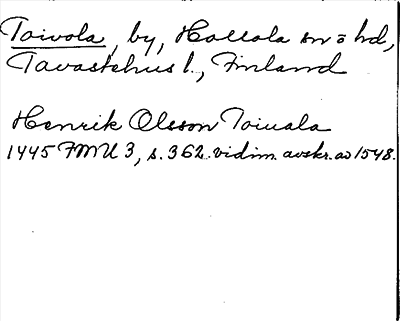 Toivola, by, Hollola sn o hd,
Tavastehus l., Finland
Henrik Olsson Toiuala
1445 FMU 3, s. 362. vidim. avskr. av 1548.